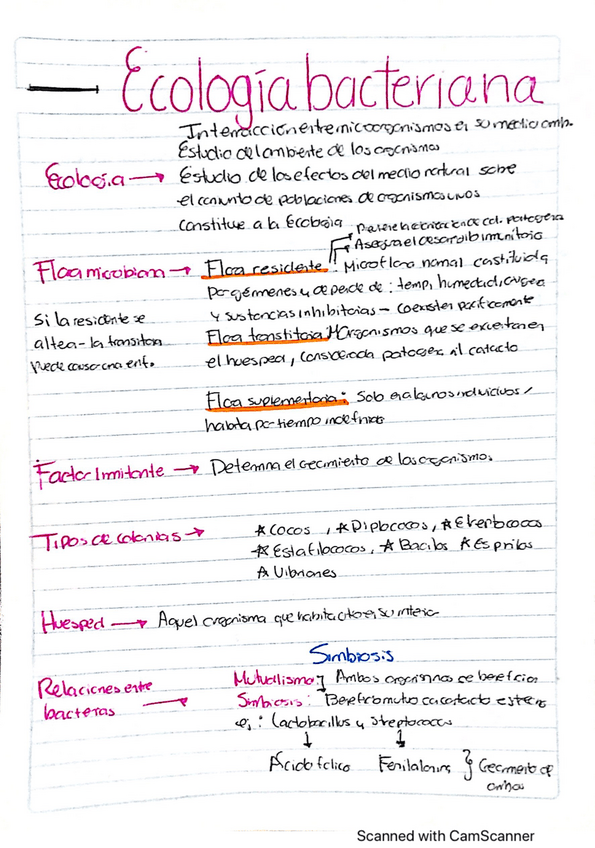 Ecología bacteriana
Interacción entre microorganismos en su medio amb.
Estudio del ambiente de los organismos
Ecología → Estudio de los efectos del medio natural sobre
el conjunto de poblaciones de organismos vivos
constituye a la Ecología
Previene la de col. patógena
Asegura el desarrollo inmunitario
Flora microbiana → Flora residente: Microflora normal constituida
por gérmenes y depende de: temp, humedad,
y sustancias inhibitorias - coexisten pacíficamente
Si la residente se
altera - la transitoria
puede causar una enf.
Flora transitoria: Organismos que se encuentran en
el huesped, considerada patogena al contacto
Flora suplementaria: Solo en algunos individuos /
habita por tiempo indefinido
Factor limitante → Determina el crecimiento de los organismos.
Tipos de colonias → *Cocos, *Diplococos,
*Estafilococos, *Bacilos *Espirilos
*Vibriones
Huesped → Aquel organismo que habita otro en su interior
Simbiosis
Relaciones entre
bacterias →
Mutualismo: Ambos organismos se benefician
Simbiosis: Beneficio mutuo con contacto estrecho
ej: Lactobacillus y Streptococcus
↓ ↓
Ácido fólico Fenilalanina } Crecimiento de
ambos
Scanned with CamScanner